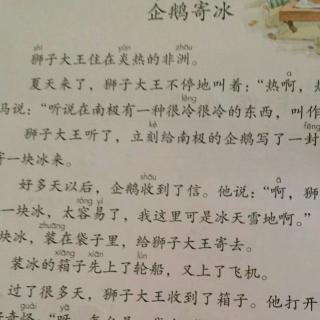 企鹅寄冰
shī yán zhōu
狮子大王住在炎热的非洲。
夏天来了，狮子大王不停地叫着：“热啊，
lěng
马说：“听说在南极有一种很冷很冷的东西，叫作
kè fēng
狮子大王听了，立刻给南极的企鹅写了一封
寄一块冰来。
shōu
好多天以后，企鹅收到了信。他说：“啊，狮
róng yì
一块冰，太容易了，我这里可是冰天雪地啊。”
zhuāng
块冰，装在袋子里，给狮子大王寄去。
xiāng xiān lún
装冰的箱子先上了轮船，又上了飞机。
过了很多天，狮子大王收到了箱子。他打开
guài